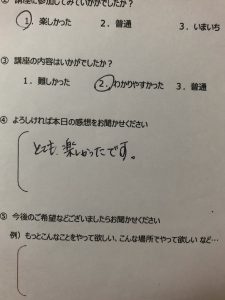 ② 講座に参加してみていかがでしたか？
1．楽しかった　2．普通　3．いまいち
③ 講座の内容はいかがでしたか？
1．難しかった　2．わかりやすかった　3．普通
④ よろしければ本日の感想をお聞かせください
とても楽しかったです。
⑤ 今後のご希望などございましたらお聞かせください
例）もっとこんなことをやって欲しい、こんな場所でやって欲しい など…